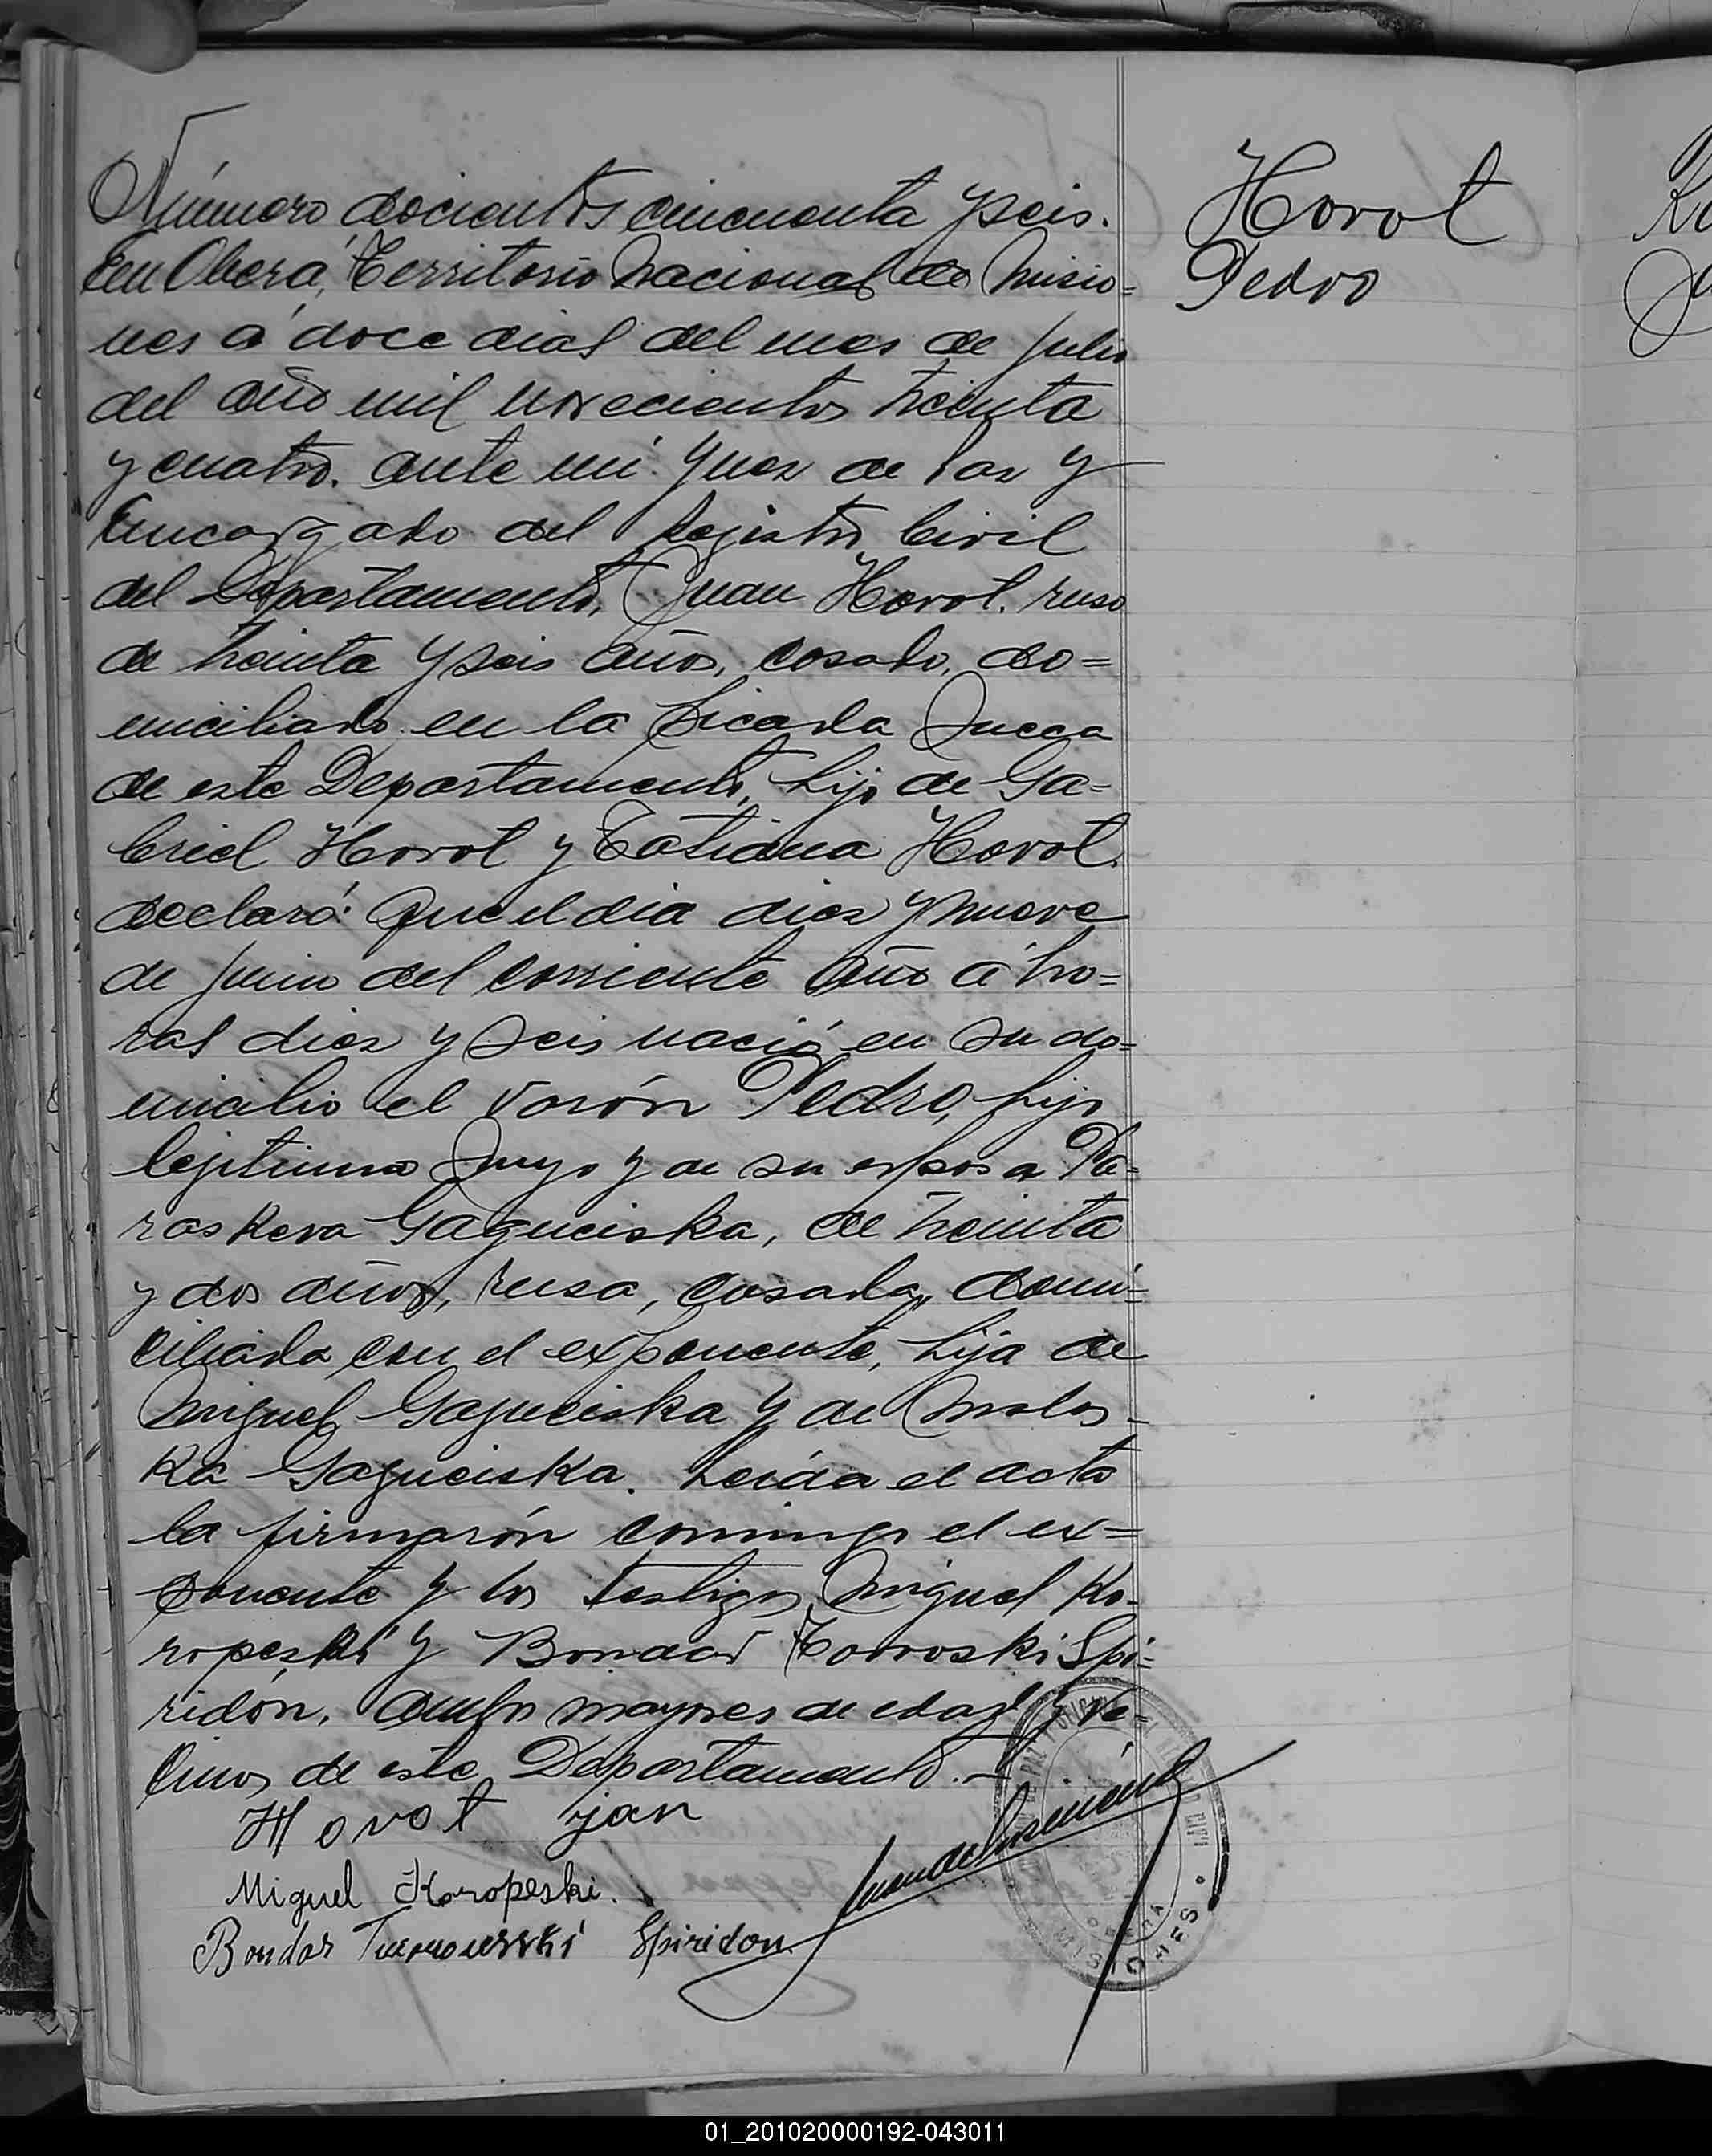 Número docientos cincuenta y seis.
En Oberá, Territorio Nacional de Misio=
nes a doce dias del mes de Julio
del año mil novecientos treinta
y cuatro. ante mi Juez de Paz y
Encargado del Rejistro Civil
del Departamento, Juan Horot. ruso
de treinta y seis años, casado, do=
miciliado en la Picada Sueca
de este Departamento, hijo de Ga=
briel Horot y Tatiana Horot.
declaró: Que el dia diez y nueve
de Junio del corriente año a ho=
ras diez y seis nació en su do=
micilio el varón Pedro, hijo
lejitimo suyo y de su esposa Pa=
raskeva Gagueiska, de treinta
y dos años, rusa, casada, domi=
ciliada con el exponente, hija de
Miguel Gagueiska y de Malos-
ka Gagueiska. Leida el acta
la firmarón conmigo el ex=
ponente y los testigos Miguel Ko-
ropeski y Bondar Spi=
ridón, ambos mayores de edad y ve-
cinos de este Departamento.-
Horot jan
Miguel Koropeski.
Bondar Spiridon
Horot
Pedro
MISIONES
01_201020000192-043011